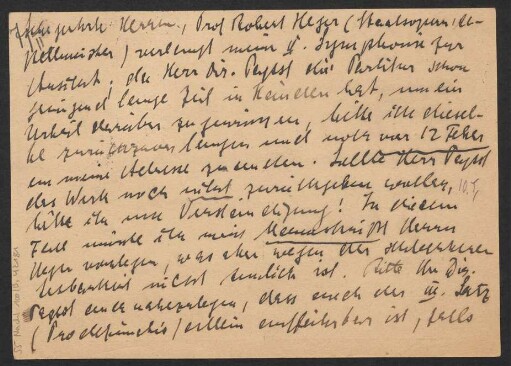 Sehr geehrte Herren, Prof Robert Heger (Staatsopern-Ka-
pellmeister) verlangt meine II. Symphonie zur
Ansicht, da Herr Dir. Pabst die Partitur schon
genügend lange Zeit in Händen hat, um ein
Urteil darüber zu gewinnen, bitte ich diesel-
be zurückzuverlangen und noch vor 12 Feber
an meine Adresse zu senden. Sollte Herr Pabst
das Werk noch nicht zurückgeben wollen,
bitte ich um Verständigung! In diesem
Fall müsste ich mein Manuskript Herrn
Heger vorlegen, was aber wegen der schlechteren
Lesbarkeit nicht tunlich ist. Bitte Hn Dir.
Pabst auch nahezulegen, dass auch der III. Satz
( ) allein aufführbar ist, falls